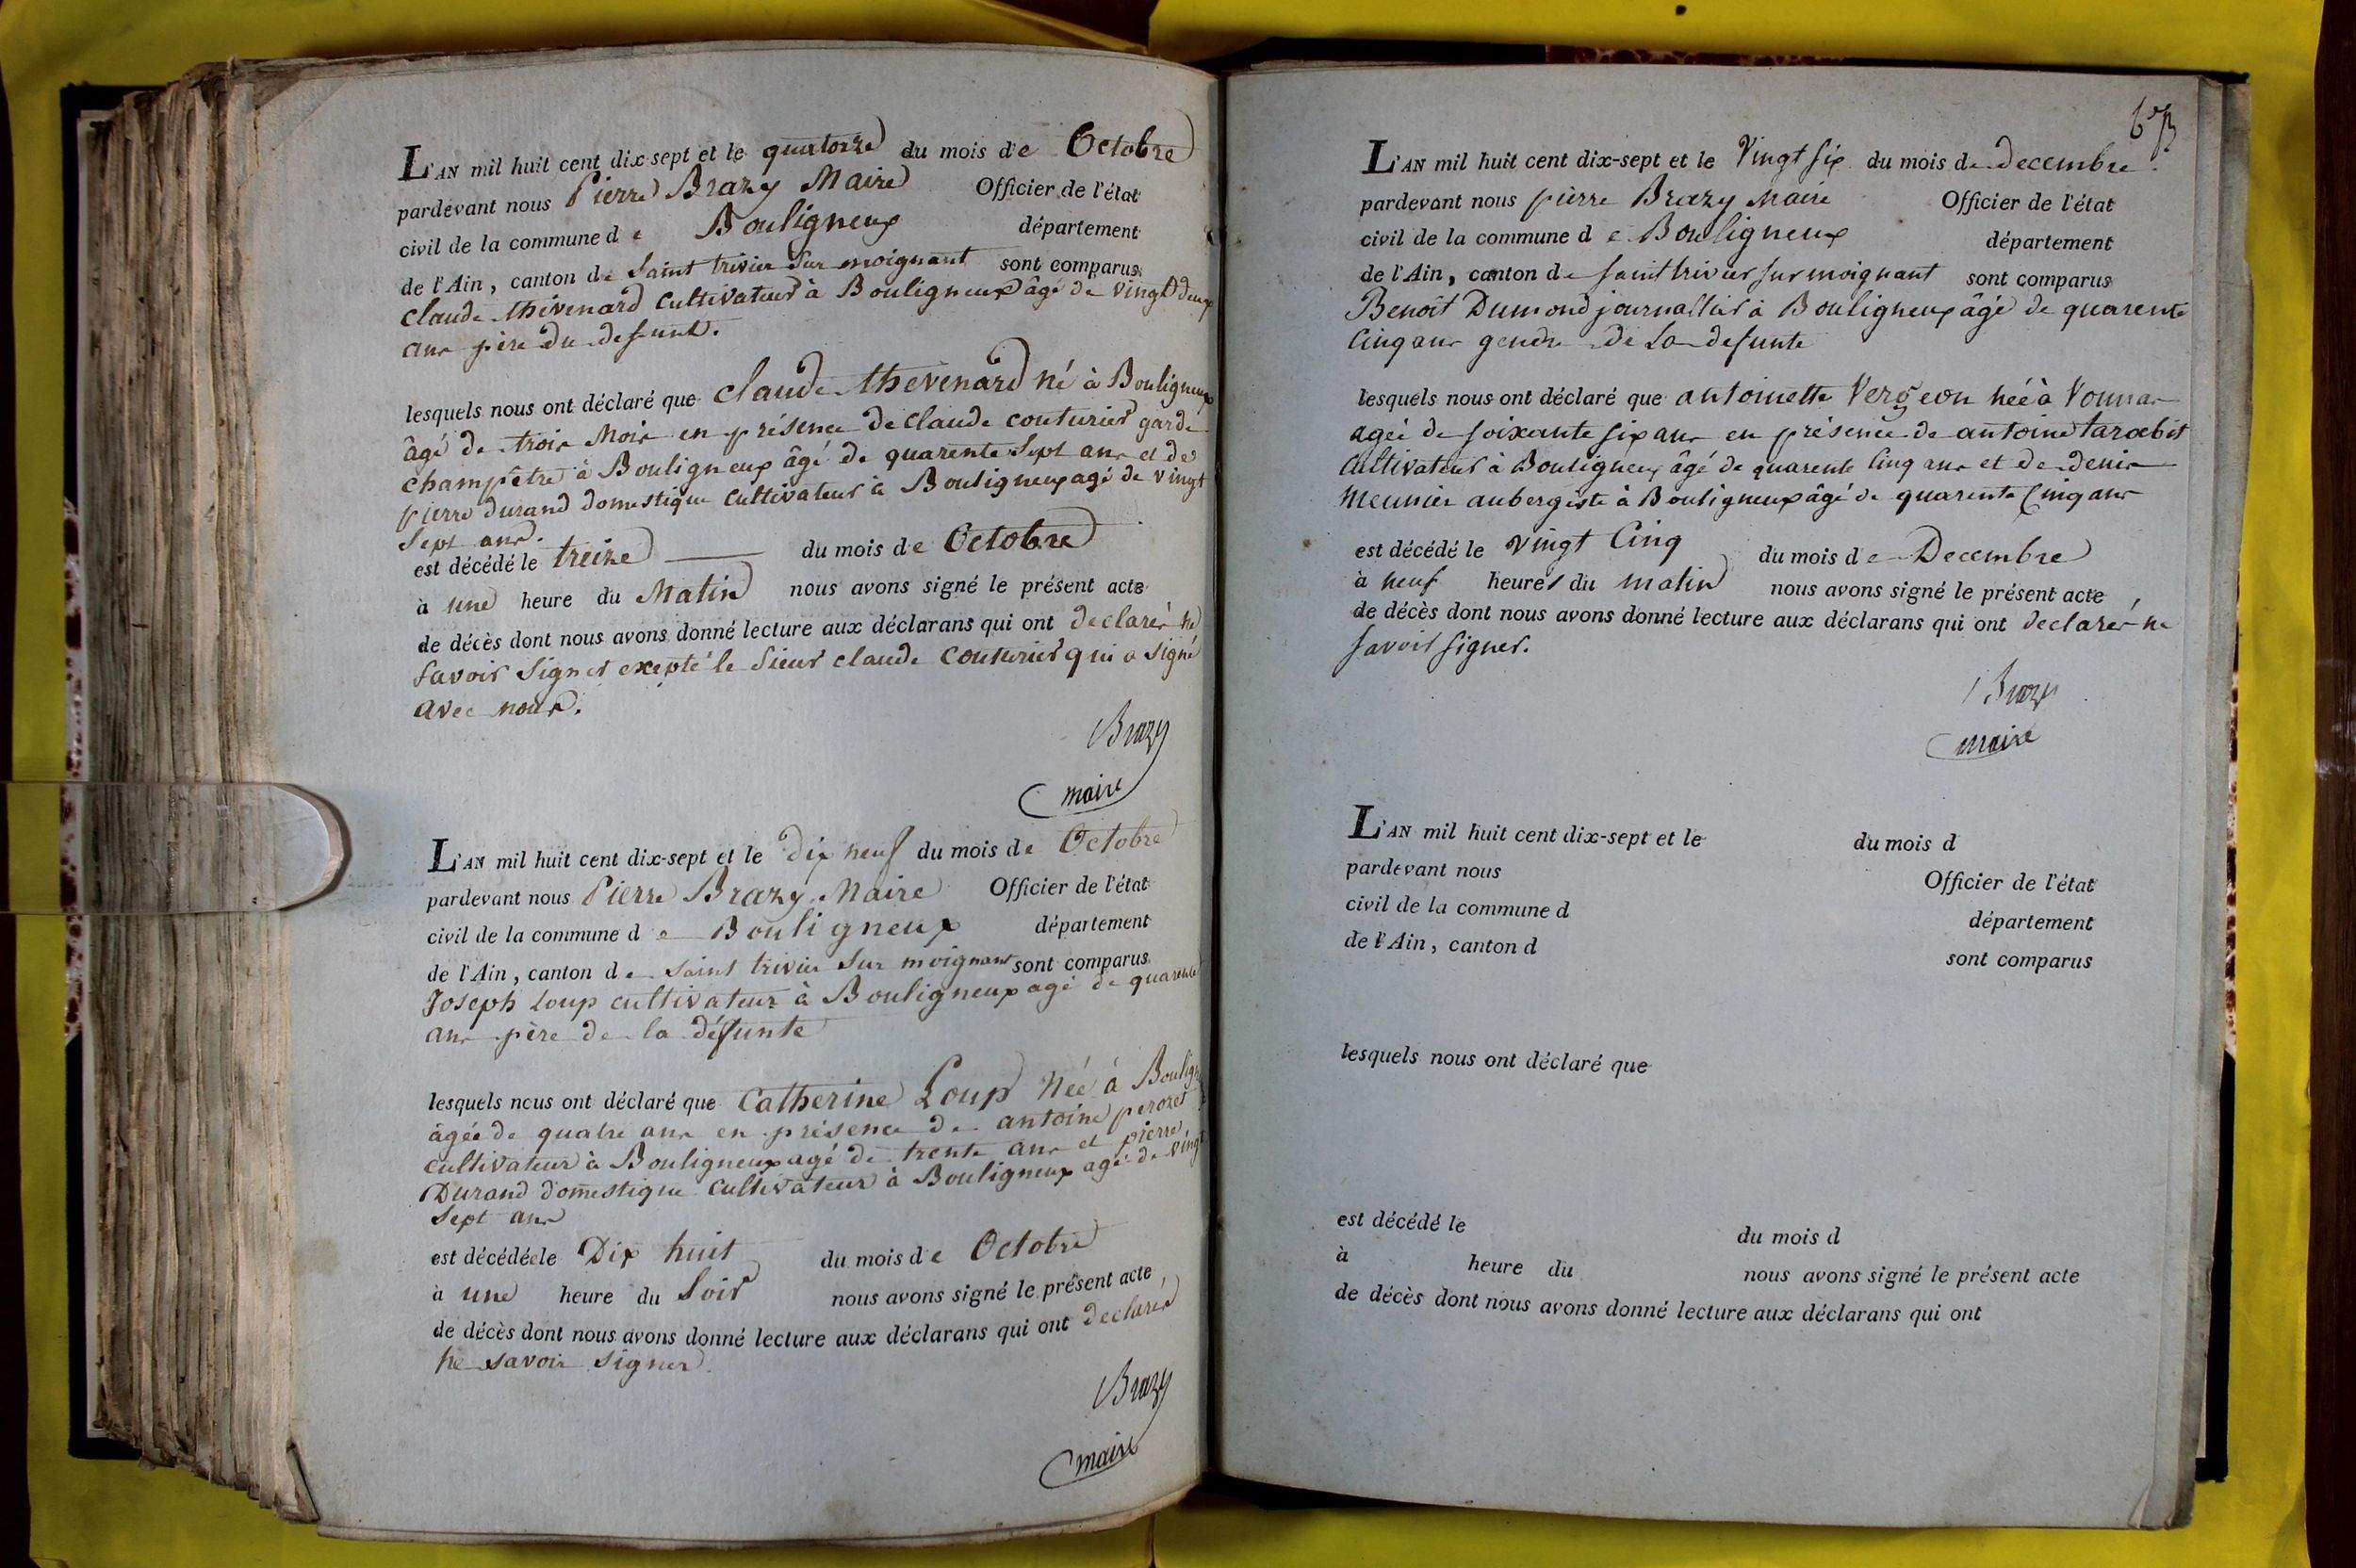 L'AN mil huit cent dix-sept et le quatorze du mois de Octobre
pardevant nous Pierre Brazy Maire Officier de l'état
civil de la commune de Bouligneux département
de l'Ain, canton de Saint trivier Sur moignant sont comparus
claude thévenard cultivateur à Bouligneux âgé de vingt deux
ans père du defunt.
lesquels nous ont déclaré que claude thevenard né à Bouligneux
âgé de trois Mois en présence de claude couturier garde
champêtre à Bouligneux âgé de quarente Sept ans et de
pierre durand domestique cultivateur à Bouligneux agé de vingt
Sept ans.
est décédé le treize du mois de Octobre
à une heure du Matin nous avons signé le présent acte
de décès dont nous avons donné lecture aux déclarans qui ont declarés ne
Savoir Signer exepté le Sieur claude couturier qui a signé
avec nous.
Brazy
maire
L'AN mil huit cent dix-sept et le dix neuf du mois de Octobre
pardevant nous Pierre Brazy Maire Officier de l'état
civil de la commune de Bouligneux département
de l'Ain, canton de Saint trivier Sur moignant sont comparus
Joseph Loup cultivateur à Bouligneux agé de quarente
ans père de la défunte
lesquels nous ont déclaré que Catherine Loup Née à Bouligne
âgée de quatre ans en présence de antoine perozet
cultivateur à Bouligneux agé de trente ans et pierre
Durand domestique cultivateur à Bouligneux agé de vingt
Sept ans
est décédée le Dix huit du mois de Octobre
à une heure du Soir nous avons signé le présent acte
de décès dont nous avons donné lecture aux déclarans qui ont declarés
ne savoir signer
Brazy
maire
L'AN mil huit cent dix-sept et le Vingt six du mois de decembre
pardevant nous pierre Brazy Maire Officier de l'état
civil de la commune de Bouligneux département
de l'Ain, canton de saint trivier sur moignant sont comparus
Benoit Dumond journallier à Bouligneux âgé de quarente
Cinq ans gendre de La defunte
lesquels nous ont déclaré que antoinette Vergeon née à Vonnas
agée de soixante six ans en présence de antoine tarabit
Cultivateur à Bouligneux âgé de quarente Cinq ans et de denis
Meunier aubergiste à Bouligneux âgé de quarente Cinq ans
est décédé le vingt Cinq du mois de Decembre
à neuf heures du matin nous avons signé le présent acte
de décès dont nous avons donné lecture aux déclarans qui ont declarés ne
savoir signer.
Brazy
maire
L'AN mil huit cent dix-sept et le du mois d
pardevant nous Officier de l'état
civil de la commune d département
de l'Ain, canton d sont comparus
lesquels nous ont déclaré que
est décédé le du mois d
à heure du nous avons signé le présent acte
de décès dont nous avons donné lecture aux déclarans qui ont